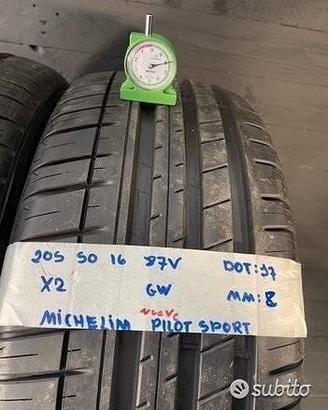 205 50 16 87V DOT:17
X2 GW MM:8
NUOVE
MICHELIM PILOT SPORT
subito